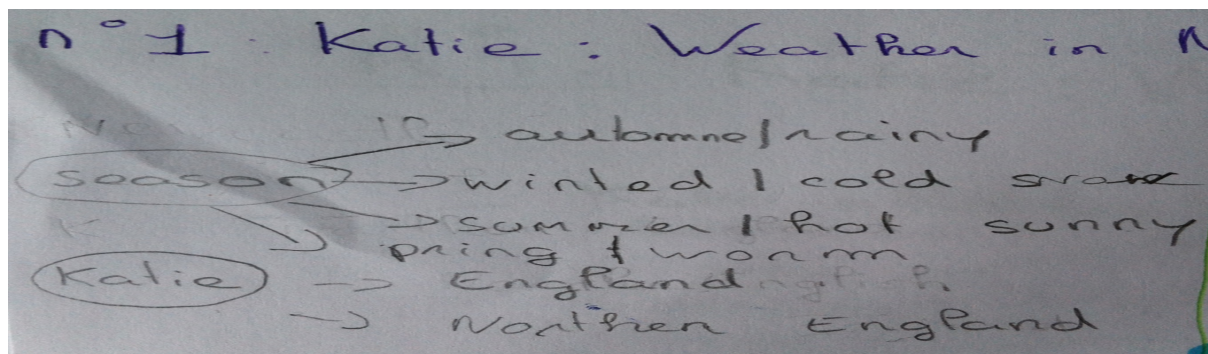 n°1 : Katie : Weather in N
automne/rainy
season → winted / cold
→ summer / hot sunny
pring / worm
Katie → England
→ Northen England